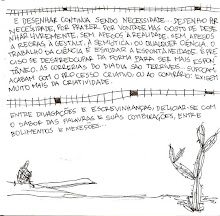 E DESENHAR CONTINUA SENDO NECESSIDADE. DESENHO POR
NECESSIDADE, POR PRAZER, POR VONTADE. MAS GOSTO DE DESE-
NHAR LIVREMENTE, SEM APEGOS À REALIDADE, SEM APEGOS
A REGRAS, A GESTALT, A SEMIÓTICA, OU QUALQUER CIÊNCIA. O
TRABALHO DA CIÊNCIA É ESTUDAR A ESPONTANEIDADE. É PRE-
CISO SE DESPREOCUPAR DA FORMA PARA SER MAIS ESPON-
TÂNEO. AS CORRERIAS DO DIA DIA SÃO TERRÍVEIS. SUFOCAM,
ACABAM COM O PROCESSO CRIATIVO. OU AO CONTRÁRIO: EXIGEM
MUITO MAIS DA CRIATIVIDADE.
ENTRE DIVAGAÇÕES E ESCREVINHANÇAS, DELICIAR-SE COM
O SABOR DAS PALAVRAS E SUAS COMPLICAÇÕES, ENTRE
BOLIMENTOS E MEXEXÕES.